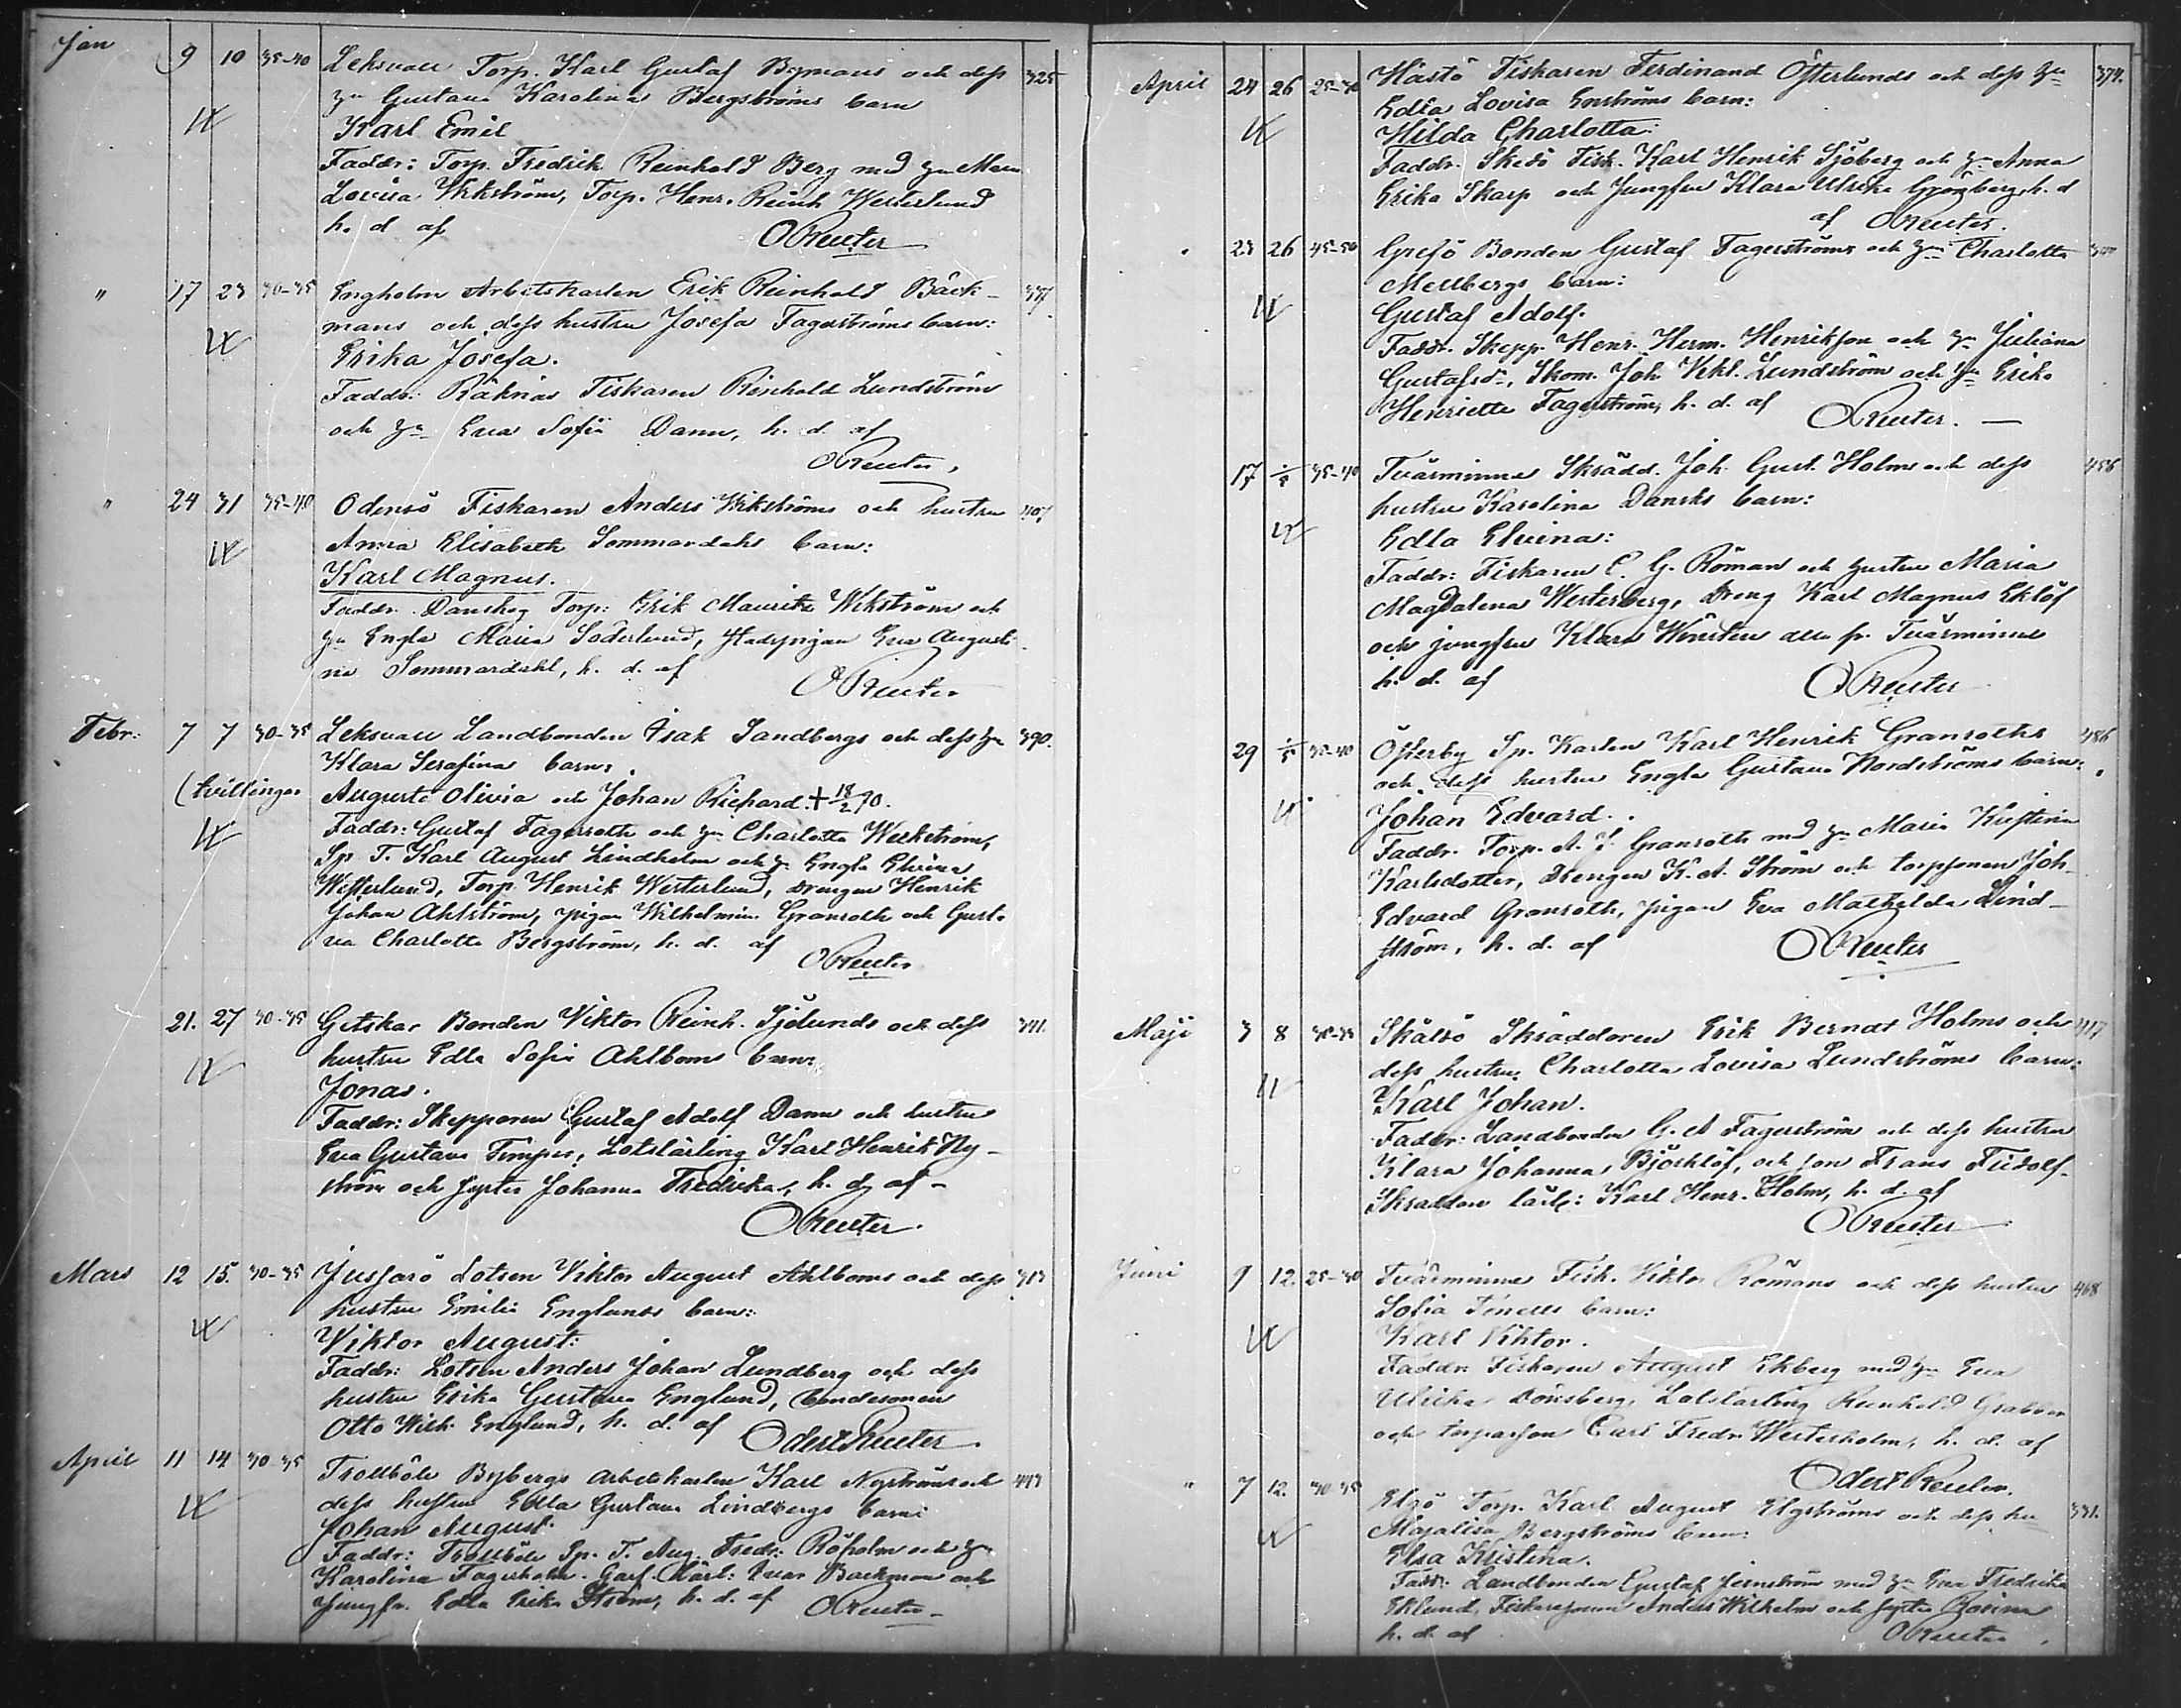 Jan 9 10 35-40 Leksvall Torp. Karl Gustaf Bymans och dess 325
hu Gustava Karolina Bergströms barn
Karl Emil
Faddr: Torp. Fredrik Reinhold Berg med hu Maria
Lovisa Wikström, Torp. Henr. Reinh Westerlund
h. d. af OReuter
" 17 23 30-35 Engholm Arbetskarlen Erik Reinhold Bäck- 337
mans och dess hustru Josefa Fagerströms barn:
Erika Josefa.
Faddr: Räknäs Fiskaren Reinhold Lundström
och hu Eva Sofia Dann, h. d. af
OReuter,
" 24 31 35-40 Odensö Fiskaren Anders Wikströms och hustru 407
Anna Elisabeth Sommardahls barn:
Karl Magnus.
Faddr. Danskog Torp: Erik Mauritz Wikström och
hu Engla Maria Söderlund, Stadspigan Eva Augusti-
na Sommardahl, h. d. af
OReuter
Febr: 7 7 30-35 Leksvall Landbonden Isak Sandbergs och dess hu 390.
Klara Serafina barn:
(tvillingar Augusta Olivia och Johan Richard. + 18/2 70.
Faddr: Gustaf Fagerroth och hu Charlotta Weckström,
Sp. T. Karl August Lindholm och hu Engla Elvina
Westerlund, Torp. Henrik Westerlund, drengen Henrik
Johan Ahlström, pigan Wilhelmin. Granroth och Gusta-
va Charlotta Bergström, h. d. af
OReuter
21. 27 30-35 Getskär Bonden Viktor Reinh. Sjölunds och dess 341.
hustru Edla Sofia Ahlboms barn:
Jonas.
Faddr: Skepparen Gustaf Adolf Dann och hustru
Eva Gustava Timper, Lotslärling Karl Henrik Ny-
ström och syster Johanna Fredrika, h. d. af -
OReuter.
Mars 12 15. 30-35 Jussarö Lotsen Viktor August Ahlboms och dess 313
hustru Emilia Englunds barn:
Viktor August:
Faddr: Lotsen Anders Johan Lundberg och dess
hustru Erika Gustava Englund, bondesonen
Otto Wilh. Englund, h. d. af Odert Reuter
April 11 14 30-35 Trollböle Bybergs arbetskarlen Karl Nyströms och 443
dess hustru Edla Gustava Lindbergs barn:
Johan August.
Faddr: Trollböle Sp. T. Aug. Fredr. Röholm och hu
Karolina Fagerholm. Garf. Lärl: Ivar Backman och
Jungfr. Edla Erika Ström, h. d. af OReuter -
April 24 26 25-30 Hästö Fiskaren Ferdinand Österlunds och dess hu 374.
Edla Lovisa Enströms barn:
Hilda Charlotta:
Faddr. Skedö Fisk. Karl Henrik Sjöberg och hu Anna
Erika Skarp och Jungfru Klara Ulrika h. d
af OReuter.
" 23 26 45-50 Grefö Bonden Gustaf Fagerströms och hu Charlotta
Mellbergs barn:
Gustaf Adolf.
Faddr. Skepp. Henr. Herm. Henrikson och hu Juliana
Gustafsd., Skom. Joh Vikt. Lundström och hu Erika
Henriette Fagerström, h. d. af OReuter. -
17 1/5 35-40 Tvärminne Skrädd. Joh. Gust. Holms och dess 456
hustru Karolina Dansks barn:
Edla Elvina:
Faddr: Fiskaren C. G. Röman och hustru Maria
Magdalena Westerberg, Dreng Karl Magnus Eklöf
och jungfru Klara Winsten alla fr. Tvärminne
h. d. af OReuter
29 1/5 35-40 Österby Sp. Karlen Karl Henrik Granroths 486
och dess hustru Engla Gustava Nordströms barn:
Johan Edvard.
Faddr. Torp. A. J. Granroth med hu Maria Kristina
Karlsdotter, Drengen K. A. Ström och torpsonen Joh.
Edvard Granroth, pigan Eva Mathilda Lind-
ström, h. d. af OReuter
Maji 3 8 30-35 Skåldö Skräddaren Erik Berndt Holms och 417
dess hustru Charlotta Lovisa Lundströms barn:
Karl Johan.
Faddr: Landbonden G. A Fagerström och dess hustru
Klara Johanna Björklöf, och son Frans Fridolf
Skräddare lärl: Karl Henr. Holm, h. d. af
OReuter
Juni 9 12. 25-30 Tvärminne Fisk. Viktor Römans och dess hustru 468
Sofia Fenells barn:
Karl Viktor.
Faddr: Fiskaren August Ekberg med hu Eva
Ulrika Dönsberg, Lotslärling Reinhold Grabber
och torparson Carl Fredr. Westerholm, h. d. af
Odert Reuter.
" 7 12. 30-35 Elgö Torp. Karl August Elgströms och dess hu 331.
Majalisa Bergströms barn:
Elsa Kristina.
Fadd: Landbonden Gustaf Jernström med hu Eva Fredrika
Eklund, Fiskaresonen Anders Wilhelm och syster Rosina
h. d. af OReuter